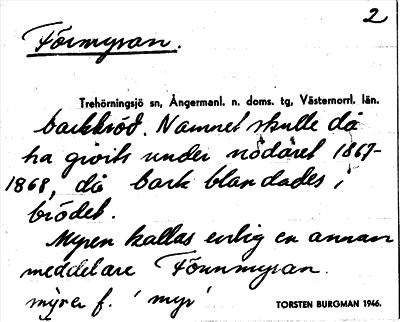 2
Förmyran.
Trehörningsjö sn, Ångermanl. n. doms. tg, Västernorrl. län.
barkbröd. Namnet skulle då
ha givits under nödåret 1867-
1868, då bark blandades i
brödet.
Myren kallas enlig en annan
meddelare Fönnmyran.
myrer f. 'myr'
TORSTEN BURGMAN 1946.